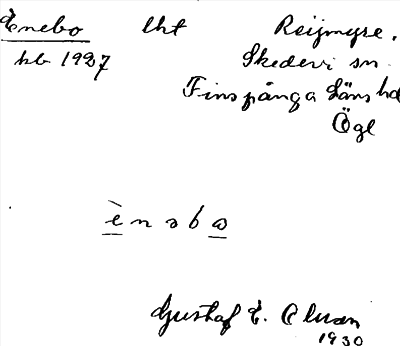 Enebo lht Reijmyre.
hb 1927 Skedevi sn.
Finspånga Läns hd
Ögl
è n ə b ω
Gustaf E. Oluan
1930